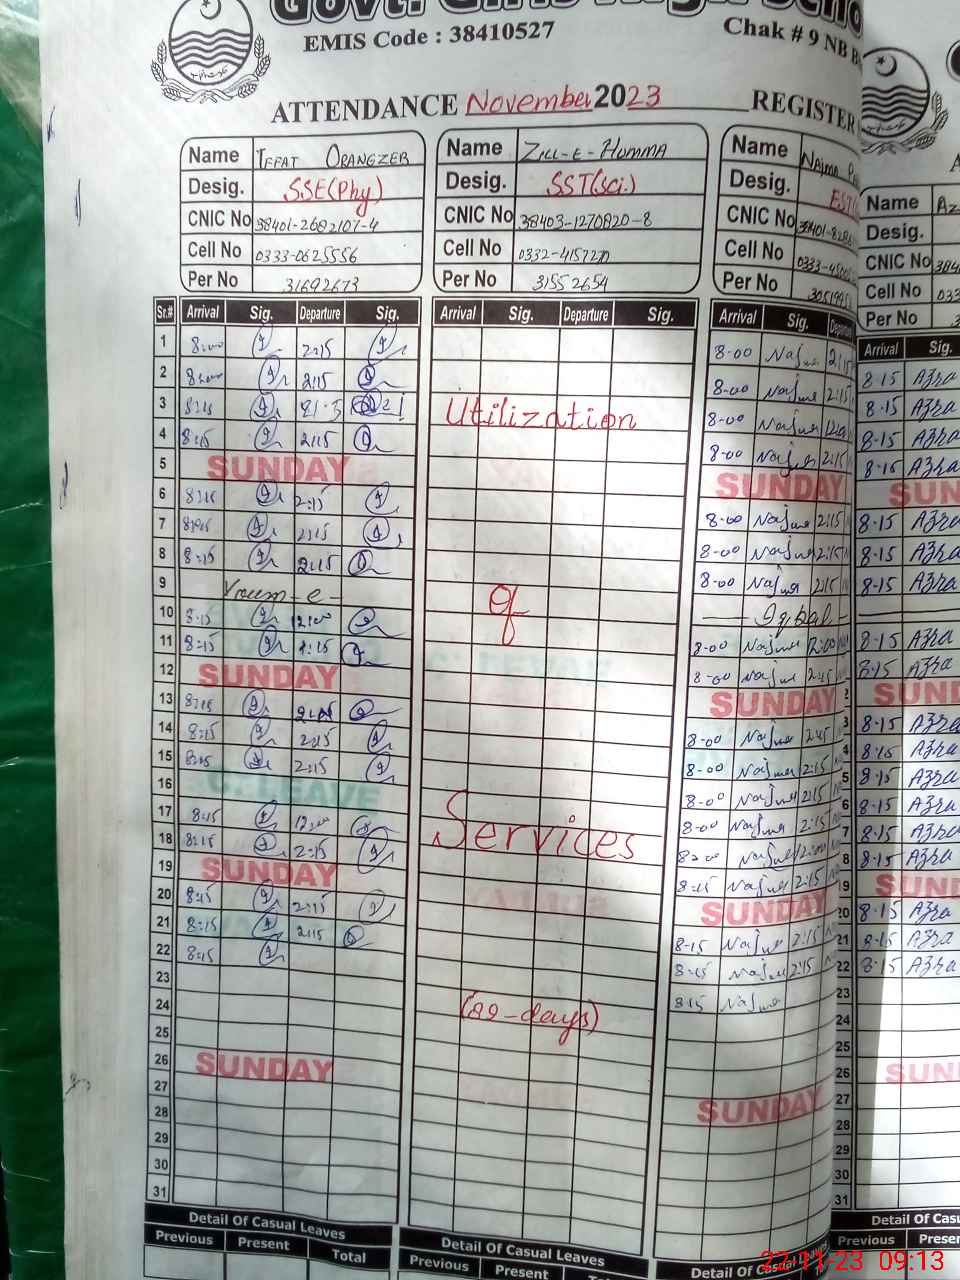 Govt. Girls High Scho
EMIS Code : 38410527
Chak # 9 NB B
ATTENDANCE November 2023 REGISTER
Name IFFAT ORANGZEB
Desig. SSE(Phy)
CNIC No 38401-2682107-4
Cell No 0333-0625556
Per No 31692673
Name ZILL-E-HUMMA
Desig. SST(Sci.)
CNIC No 38403-1270820-8
Cell No 0332-4157270
Per No 31552654
Name Najma
Desig. EST
CNIC No 38401-828
Cell No 0333-4500
Per No
Name Az
Desig.
CNIC No 384
Cell No 033
Per No 3
Sr.# Arrival Sig. Departure Sig.
1 8:00 2:15
2 8:00 2:15
3 8:15
4 8:15 2:15
5 SUNDAY
6 8:15 2:15
7 8:15 2:15
8 8:15 2:15
9 Youm-e-
10 8:15 12:00
11 8:15 2:15
12 SUNDAY
13 8:15 2:15
14 8:15 2:15
15 8:15 2:15
16 C. LEAVE
17 8:15 12:00
18 8:15 2:15
19 SUNDAY
20 8:15 2:15
21 8:15 2:15
22 8:15
23
24
25
26 SUNDAY
27
28
29
30
31
Detail Of Casual Leaves
Previous Present Total
Arrival Sig. Departure Sig.
Utilization
of
Services
(89-days)
Detail Of Casual Leaves
Previous Present Total
Arrival Sig. Departure
8-00 Najma 2:15
8-00 Najma 2:15
8-00 Najma 12:00
8-00 Najma 2:15
SUNDAY
8-00 Najma 2:15
8-00 Najma 2:15
8-00 Najma 2:15
Iqbal
8-00 Najma 12:00
8-00 Najma 2:15
SUNDAY
8-00 Najma 2:15
8-00 Najma 2:15
8-00 Najma 2:15
8-00 Najma 2:15
8:00 Najma 12:00
8:15 Najma 2:15
SUNDAY
8-15 Najma 2:15
8:15 Najma 2:15
8:15 Najma
SUNDAY
Detail Of Casual
Previous Present
Arrival Sig.
8-15 Azra
8-15 Azra
8-15 Azra
8-15 Azra
SUN
8-15 Azra
8-15 Azra
8-15 Azra
8-15 Azra
8-15 Azra
SUND
8-15 Azra
8-15 Azra
8-15 Azra
8-15 Azra
8-15 Azra
8-15 Azra
SUND
20 8-15 Azra
21 8-15 Azra
22 8-15 Azra
23
24
25
26 SUN
27
28
29
30
31
Detail Of Cas
Previous Presen
22-11-23 09:13